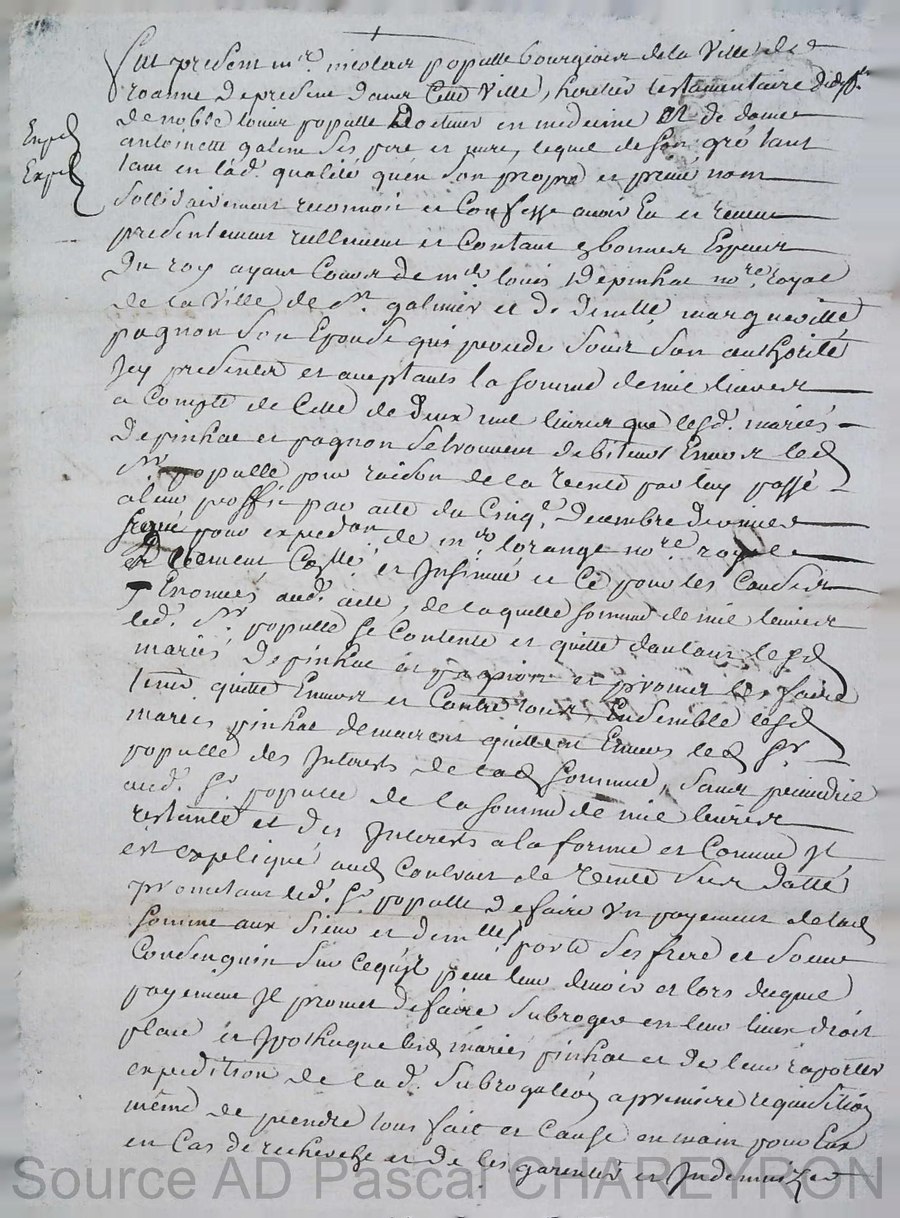 fut present mre nicolas populle bourgeois de la ville de
roanne de present dans cette ville, heritier testamentaire
de noble louis populle docteur en medecine et de dame
Expé
antoinette galine ses pere et mere, lequel de son gré tant
Expé
tant en lad. qualité qu'en son propre et privé nom
sollidairement reconnoit et confesse avoir eu et receu
presentement reellement et contant en bonnes especes
du roy ayant cours de me louis depinhac nore royal
de la ville de St galmier et de demlle margueritte
pagnon son epouse qui procede sous son authorité
icy presents et acceptants la somme de mil livres
a compte de celle de deux mil livres que lesd. mariés
depinhac et pagnon se trouvent debiteurs envers led
Sr populle pour raison de la vente par luy passé
a leur proffit par acte du cinqe decembre dernier
signé pour expedon de me lorange nore royal
et deument collé et insinué et ce pour les causes
y enoncés aud. acte, de laquelle somme de mil livres
led. Sr populle se contente et quitte d'autant lesd
mariés depinhac et pagnon et promet les faire
tenir quitte envers et contre tous, ensemble lesd
mariés pinhac demeurent quittes envers led Sr
populle des interests de lad somme, sans prejudice
aud. Sr populle de la somme de mil livres
restante et des interests a la forme et comme il
est expliqué aud contract de vente sus datté
promettant led. Sr populle de faire un payement de lad
somme aux sieur et demlle porte ses frere et soeur
consenguin sur ce qu'il peut leur devoir et lors duquel
payement il promet de faire subroger en leur lieux droit
place et ypotheque lesd mariés pinhac et de leur raporter
expedition de lad. subrogation a premiere requisition
même de prendre tous fait et cause en main pour eux
en cas de recherche et de les garentir et indemnizer
Source AD Pascal CHAREYRON